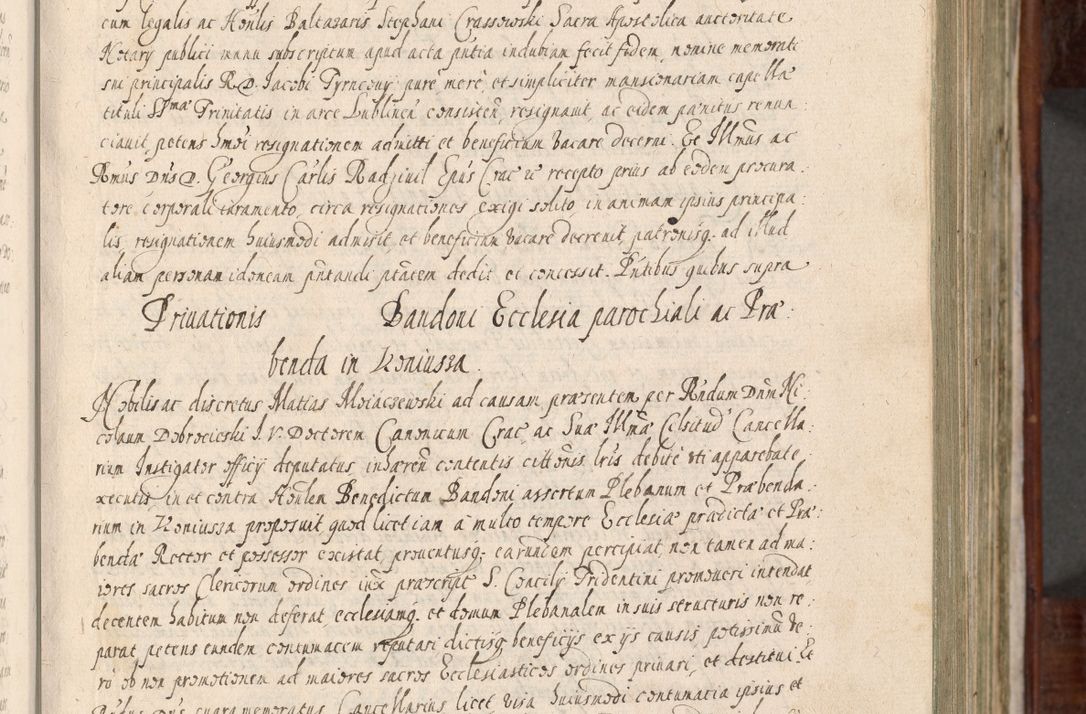 cum legalis ac Honlis Baltazaris Stephani Crassowski Sacra Apostolica auctoritate
Notary publici manu subscriptum apud acta pntia indubiam fecit fidem, nomine memorati
sui principalis R. D. Jacobi Pyrncony pure, mere, et simpliciter mansionariam capellae
tituli SSmae Trinitatis in arce Lublinen consisten, resignauit, ac eidem paenitus renun:
ciauit, petens hmoi resignationem admitti et beneficium vacare decerni. Et Illmus ac
Rmus Dnus D. Georgius Carlis Radziuil Epus Crac etc recepto prius ab eodem procura:
tore corporali iuramento, circa resignationes exigi solito, in animam ipsius principa:
lis, resignationem huiusmodi admisit, et beneficium vacare decreuit, patronisq. ad illud
aliam personam idoneam pntandi ptatem dedit et concessit. Pntibus quibus supra
Priuationis Bandoni Ecclesia parochiali ac Prae:
benda in Koniussa.
Nobilis ac discretus Mattias Moiaczewski ad causam praesentem per Rndum Dnum Ni:
colaum Dobrocieski I. V. Doctorem Canonicum Crac, ac Suae Illmae Celsitud Cancella:
rium Instigator officy deputatus inhaeren contentis cittonis lris debite vti apparebate
xecutis, in et contra Honlem Benedictum Bandoni assertum Plebanum et Praebenda:
rium in Koniussa proposuit, quod licet iam a multo tempore Ecclesiae praedictae et Prae:
bendae Rector et possessor existat, prouentusq. earundem percipiat, non tamen ad ma:
iores sacros Clericorum ordines iux praescript S. Concily Tridentini promoueri intendat
decentem habitum non deferat, ecclesiamq. et domum Plebanalem in suis structuris non re:
parat, petens eundem contumacem reputari dictisq beneficijs ex ijs causis potissimu ve:
ro ob non promotionem ad maiores sacros Ecclesiasticos ordines priuari, et destitui Et
Rndus Dnus supra memoratus Cancellarius licet visa huiusmodi contumacia ipsius et